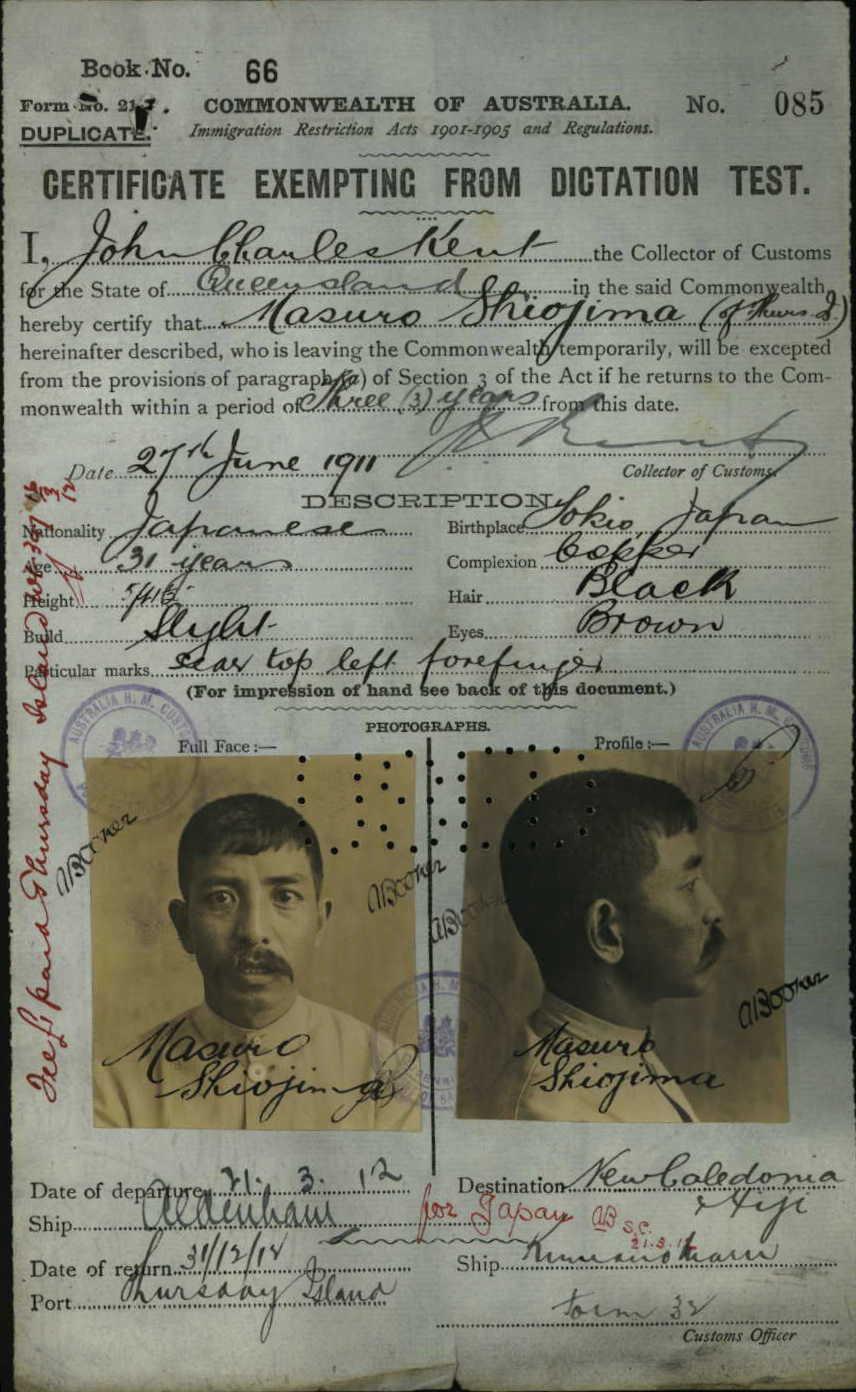 Book No. 66
Form No. 21. COMMONWEALTH OF AUSTRALIA. No. 085
DUPLICATE. Immigration Restriction Acts 1901-1905 and Regulations.
CERTIFICATE EXEMPTING FROM DICTATION TEST.
I, John Charles Kent the Collector of Customs
for the State of Queensland in the said Commonwealth,
hereby certify that Masuro Shiojima (of Thurs I.)
hereinafter described, who is leaving the Commonwealth temporarily, will be excepted
from the provisions of paragraph (a) of Section 3 of the Act if he returns to the Com-
monwealth within a period of Three (3) years from this date.
Date 27th June 1911 Collector of Customs.
DESCRIPTION
Nationality Japanese Birthplace Tokio, Japan
Age 31 years Complexion Copper
Height Hair Black
Build Slight Eyes Brown
Particular marks Scar top left forefinger
(For impression of hand see back of this document.)
PHOTOGRAPHS.
Full Face :— Profile :—
AUSTRALIA H. M. CUSTOMS
AUSTRALIA H. M. CUSTOMS
Fee £1 paid Thursday Island
Masuro
Shiojima
Masuro
Shiojima
Date of departure 21. 3. 12 Destination New Caledonia
& Fiji
Ship Aldenham for Japan
21.3.12
Date of return 31/12/14 Ship Kumano Maru
Port Thursday Island
Form 32
Customs Officer